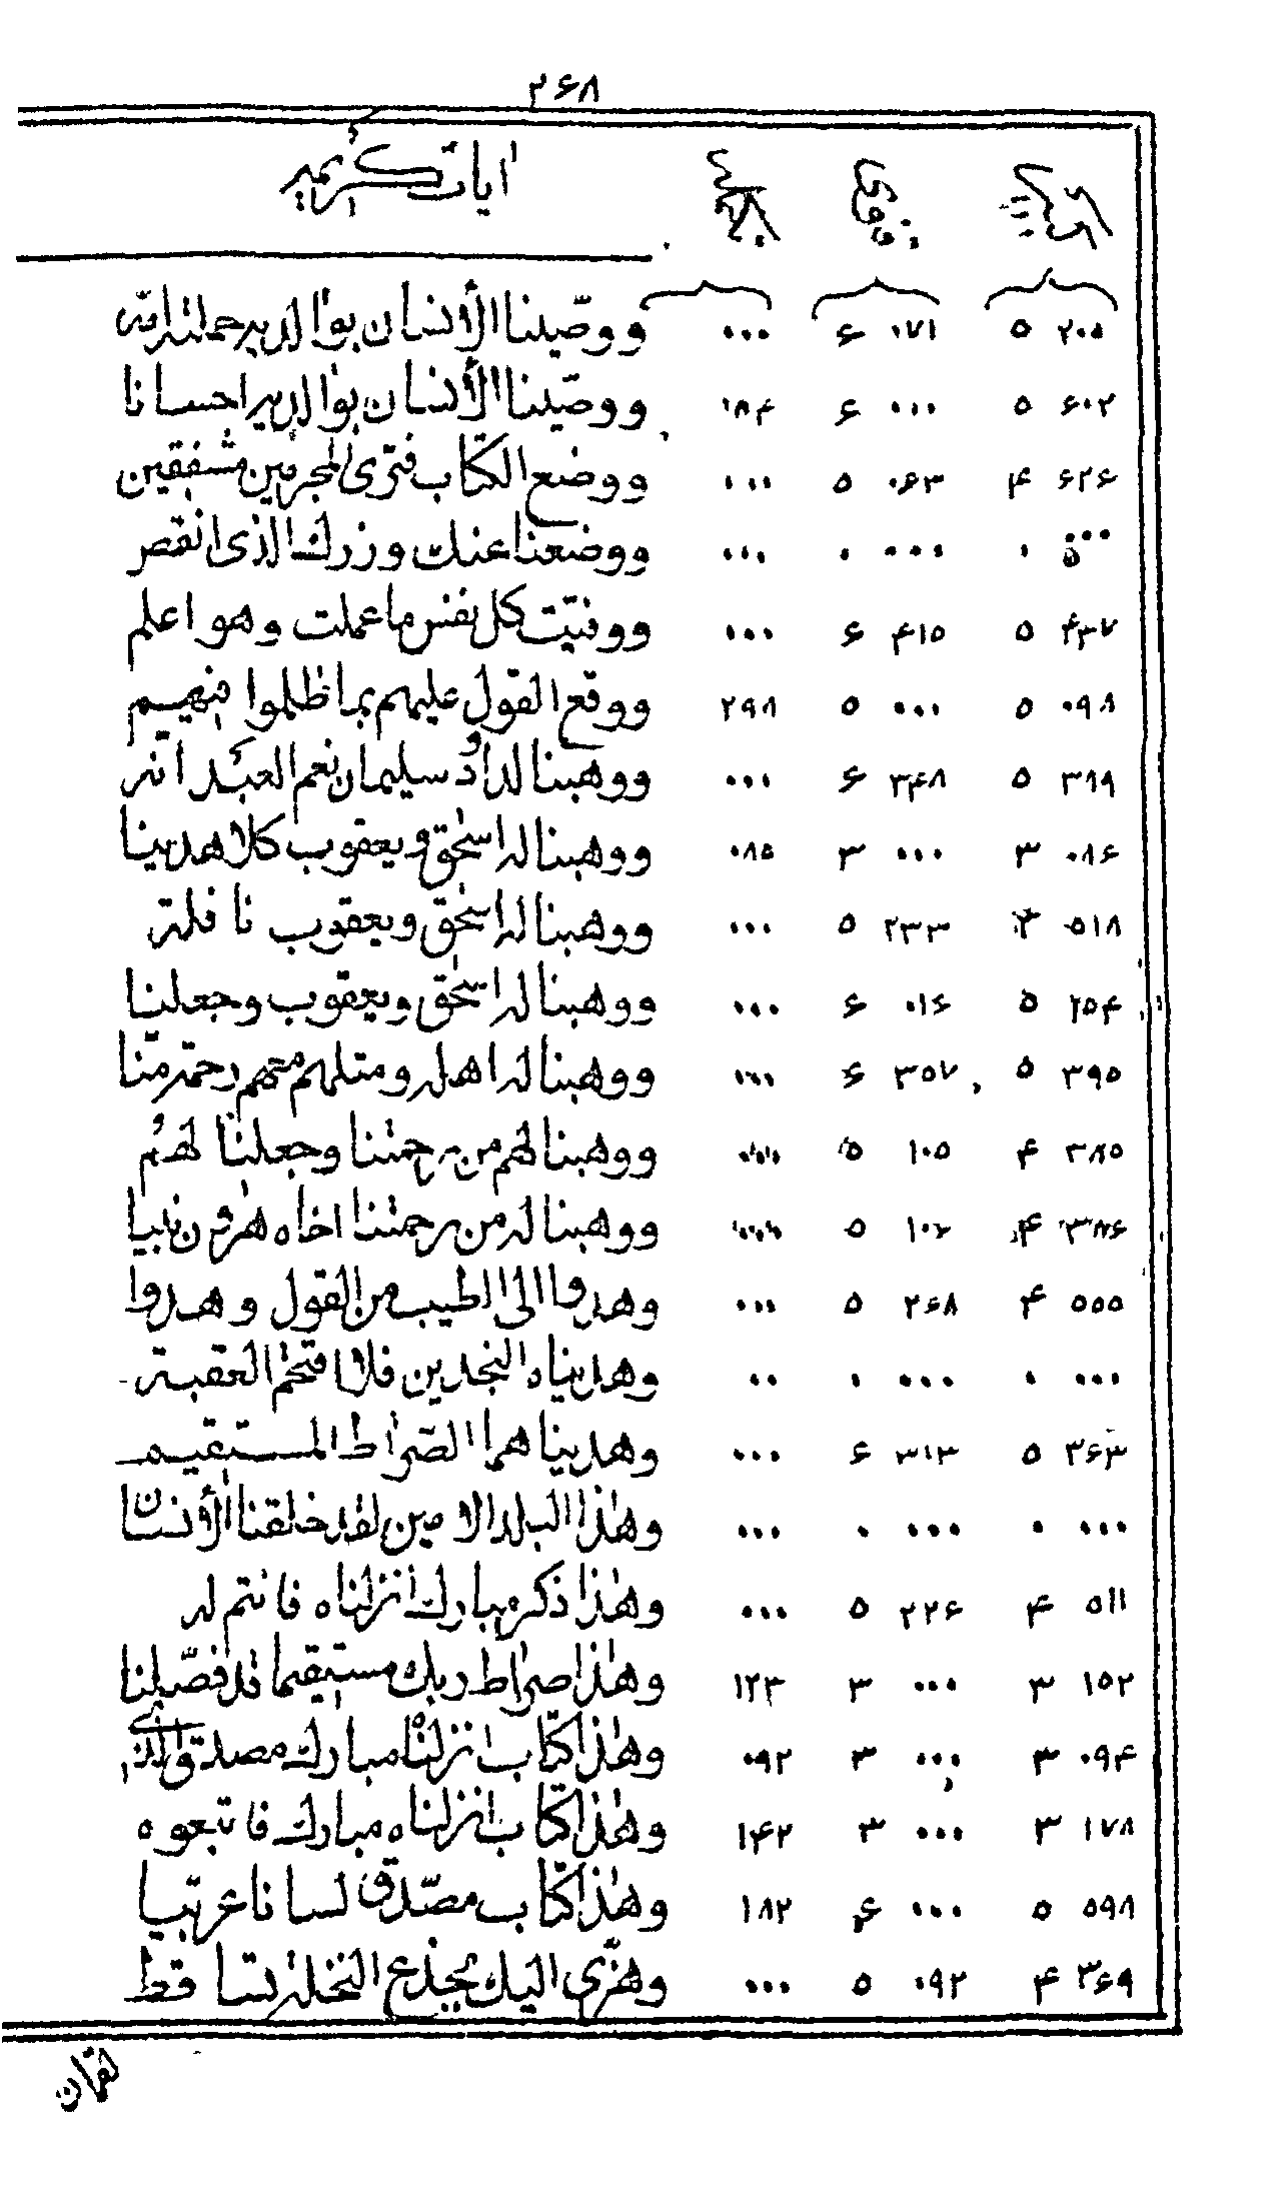 ۲۶۸
آيات كريمه
۲۰۵ ۵ ۰۷۱ ۶ ۰۰۰ ووصّينا الأنسان بوالديه حملته امّه
۶۰۲ ۵ ۰۰۰ ۶ ۱۸۴ ووصّينا الأنسان بوالديه احسانا
۶۲۶ ۴ ۰۶۳ ۵ ۰۰۰ ووضع الكتاب فترى المجرمين مشفقين
۰۰۰ ۰ ۰۰۰ ۰ ۰۰۰ ووضعنا عنك وزرك الذى انقض
۴۳۷ ۵ ۴۱۵ ۶ ۰۰۰ ووفيّت كل نفس ما عملت وهو اعلم
۰۹۸ ۵ ۰۰۰ ۵ ۲۹۸ ووقع القول عليهم بما ظلموا فهم
۳۱۹ ۵ ۳۴۸ ۶ ۰۰۰ ووهبنا لداود سليمان نعم العبد انّه
۰۸۶ ۳ ۰۰۰ ۳ ۰۸۵ ووهبنا له اسحٰق ويعقوب كلا هدينا
۵۱۸ ۴ ۲۳۳ ۵ ۰۰۰ ووهبنا له اسحٰق ويعقوب نافلة
۲۵۴ ۵ ۰۱۶ ۶ ۰۰۰ ووهبنا له اسحٰق ويعقوب وجعلنا
۳۹۵ ۵ ۳۵۷ ۶ ۰۰۰ ووهبنا له اهله ومثلهم معهم رحمة منّا
۳۸۵ ۴ ۱۰۵ ۵ ۰۰۰ ووهبنا لهم من رحمتنا وجعلنا لهم
۳۸۶ ۴ ۱۰۶ ۵ ۰۰۰ ووهبنا له من رحمتنا اخاه هٰرون نبيا
۵۵۵ ۴ ۲۶۸ ۵ ۰۰۰ وهدوا الى الطيب من القول وهدوا
۰۰۰ ۰ ۰۰۰ ۰ ۰۰ وهديناه النجدين فلا اقتحم العقبة
۳۶۳ ۵ ۳۱۳ ۶ ۰۰۰ وهديناهما الصّراط المستقيم
۰۰۰ ۰ ۰۰۰ ۰ ۰۰۰ وهٰذا البلد الامين لقد خلقنا الأنسان
۵۱۱ ۴ ۲۲۶ ۵ ۰۰۰ وهٰذا ذكر مبارك انزلناه فانتم له
۱۵۲ ۳ ۰۰۰ ۳ ۱۲۳ وهٰذا صراط ربك مستقيما قد فصّلنا
۰۹۴ ۳ ۰۰۰ ۳ ۰۹۲ وهٰذا كتاب انزلناه مبارك مصدق الذى
۱۷۸ ۳ ۰۰۰ ۳ ۱۴۲ وهٰذا كتاب انزلناه مبارك فاتبعوه
۵۹۸ ۵ ۰۰۰ ۶ ۱۸۲ وهٰذا كتاب مصّدق لسانا عربيا
۳۶۹ ۴ ۰۹۲ ۵ ۰۰۰ وهزّى اليك بجذع النخلة تساقط
لقمان